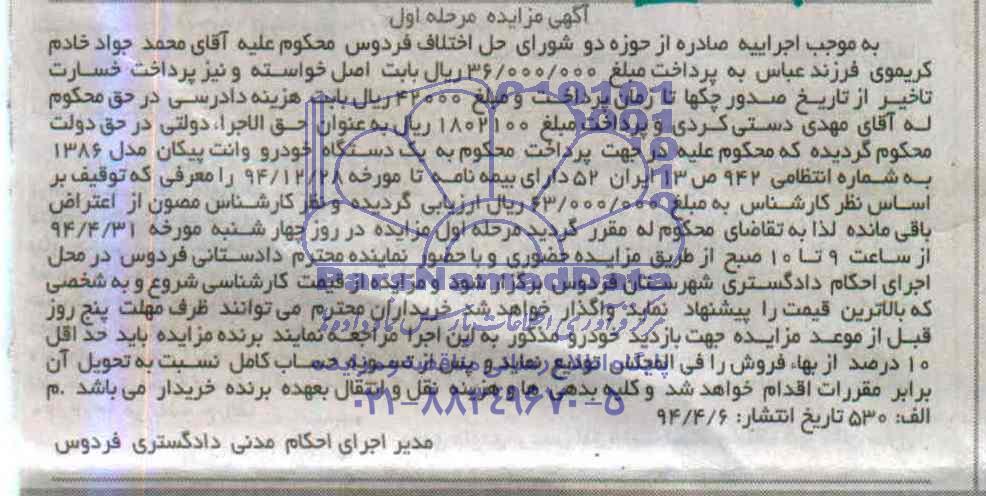 آگهی مزایده مرحله اول
به موجب اجراییه صادره از حوزه دو شورای حل اختلاف فردوس محکوم علیه آقای محمد جواد خادم
کریموی فرزند عباس به پرداخت مبلغ ۳۶/۰۰۰/۰۰۰ ریال بابت اصل خواسته و نیز پرداخت خسارت
تاخیر از تاریخ صدور چکها تا زمان پرداخت و مبلغ ۴۲۰۰۰ ریال بابت هزینه دادرسی در حق محکوم
له آقای مهدی دستی کردی و پرداخت مبلغ ۱۸۰۲۱۰۰ ریال به عنوان حق الاجرا، دولتی در حق دولت
محکوم گردیده که محکوم علیه در جهت پرداخت محکوم به یک دستگاه خودرو وانت پیکان مدل ۱۳۸۶
به شماره انتظامی ۹۴۲ ص ۱۳ ایران ۵۲ دارای بیمه نامه تا مورخه ۹۴/۱۲/۲۸ را معرفی که توقیف بر
اساس نظر کارشناس به مبلغ ۶۳/۰۰۰/۰۰۰ ریال ارزیابی گردیده و نظر کارشناس مصون از اعتراض
باقی مانده لذا به تقاضای محکوم له مقرر گردید مرحله اول مزایده در روز چهار شنبه مورخه ۹۴/۴/۳۱
از ساعت ۹ تا ۱۰ صبح از طریق مزایده حضوری و با حضور نماینده محترم دادستانی فردوس در محل
اجرای احکام دادگستری شهرستان فردوس برگزار شود و مزایده از قیمت کارشناسی شروع و به شخصی
که بالاترین قیمت را پیشنهاد نماید واگذار خواهد شد خریداران محترم می توانند ظرف مهلت پنج روز
قبل از موعد مزایده جهت بازدید خودرو مذکور به این اجرا مراجعه نمایند برنده مزایده باید حد اقل
۱۰ درصد از بهاء فروش را فی المجلس تودیع نماید و پس از تسویه حساب کامل نسبت به تحویل آن
برابر مقررات اقدام خواهد شد و کلیه بدهی ها و هزینه نقل و انتقال بعهده برنده خریدار می باشد .م
الف: ۵۳۰ تاریخ انتشار: ۹۴/۴/۶
مدیر اجرای احکام مدنی دادگستری فردوس
ParsNamadData
۰۲۱-۸۸۳۴۹۶۷۰-۵